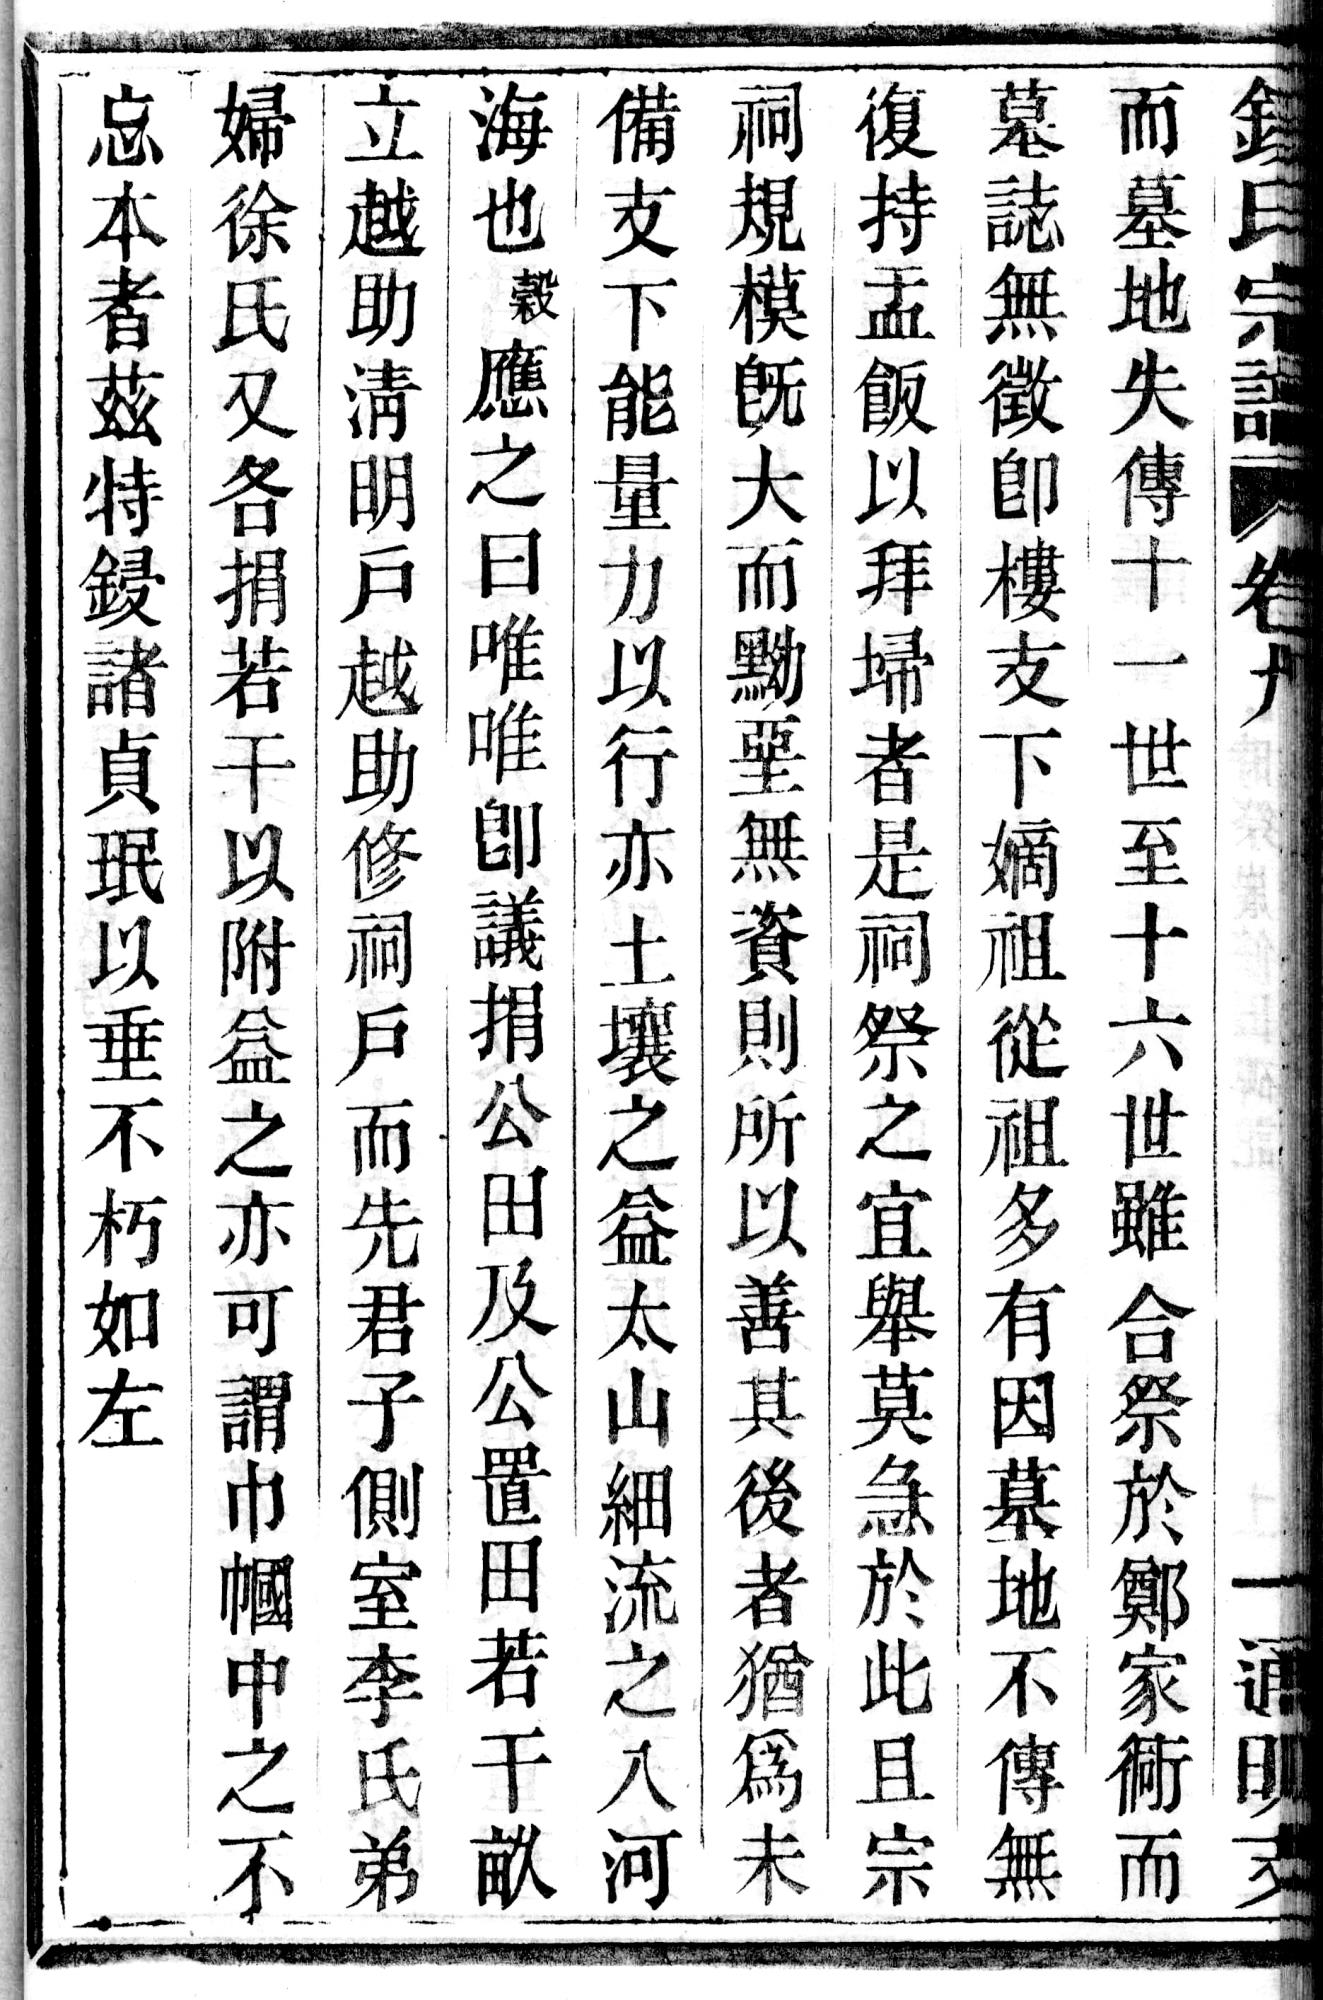 氏宗譜 卷九 一 通明支
而墓地失傳十一世至十六世雖合祭於鄭家衕而
墓誌無徵卽樓支下嫡祖從祖多有因墓地不傳無
復持盂飯以拜埽者是祠祭之宜舉莫急於此且宗
祠規模旣大而黝堊無資則所以善其後者猶爲未
備支下能量力以行亦土壤之益太山細流之入河
海也穀應之曰唯唯卽議捐公田及公置田若干畝
立越助淸明戶越助修祠戶而先君子側室李氏弟
婦徐氏又各捐若干以附益之亦可謂巾幗中之不
忘本者茲特鋟諸貞珉以垂不朽如左